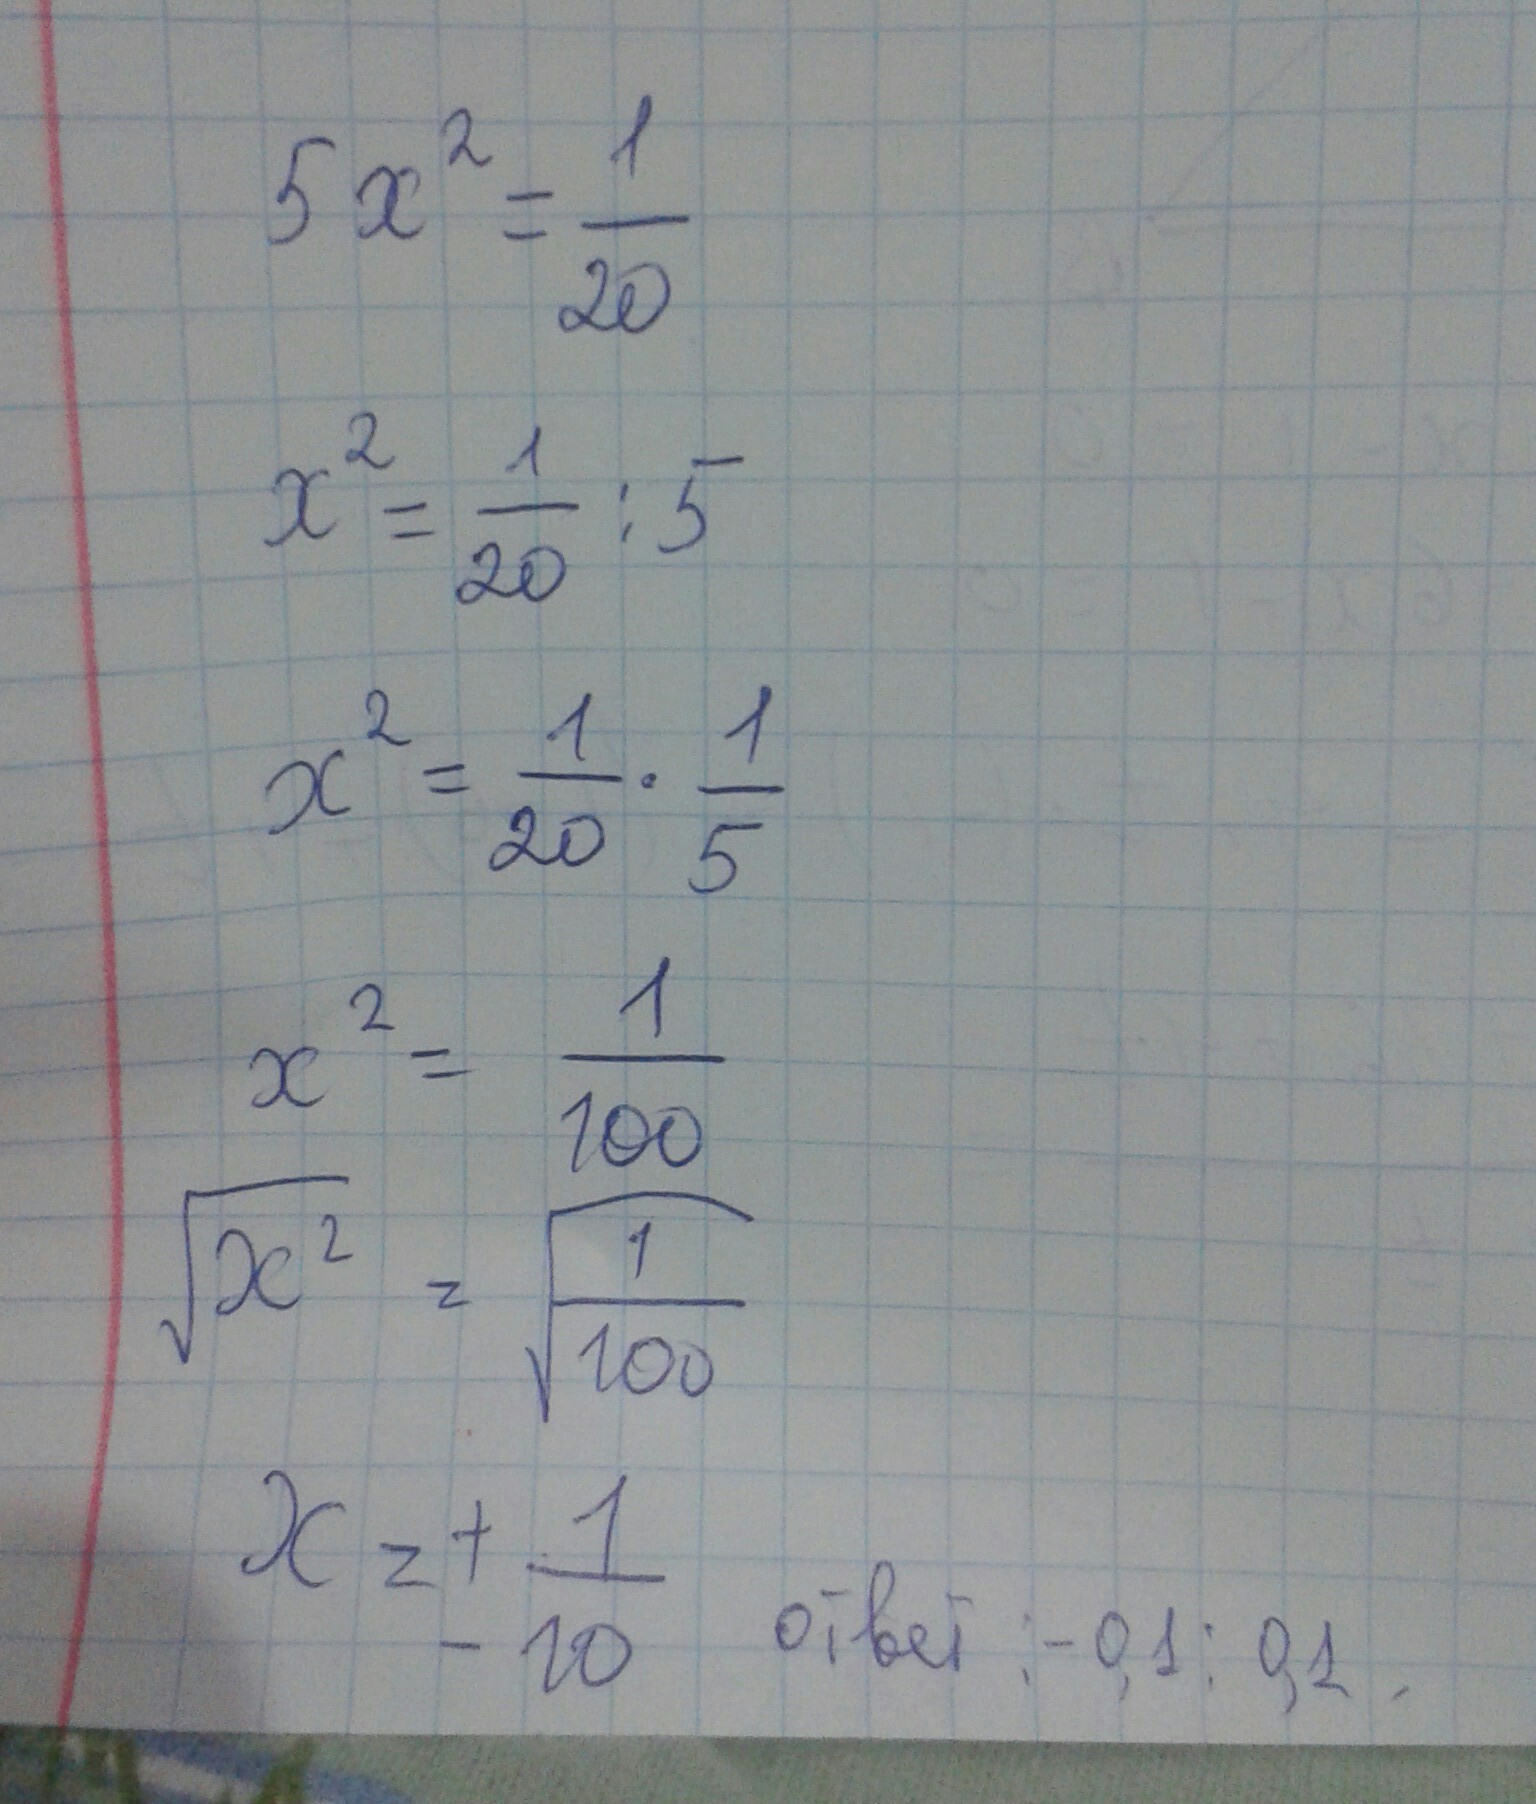 5x² = 1/20
x² = 1/20 : 5
x² = 1/20 · 1/5
x² = 1/100
√x² = √1/100
x = ± 1/10 ответ : -0,1 : 0,1.